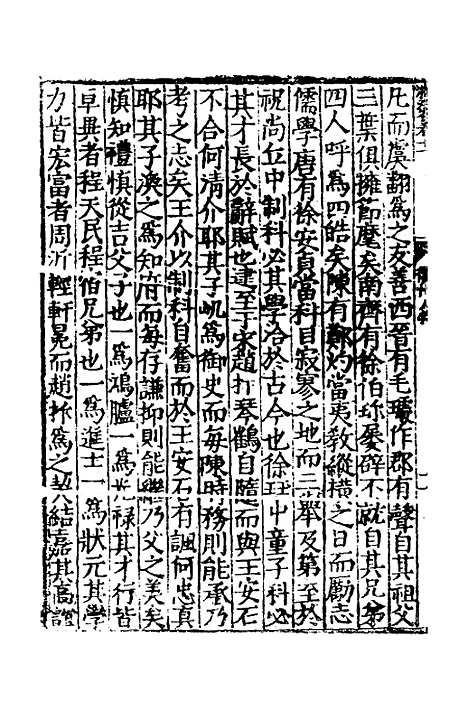 凡而虞翻爲之友善西晉有毛璩作郡有聲自其祖父
三葉俱擁節麾矣南齊有徐伯珍屡辟不就自其兄弟
四人呼爲四皓矣陳有鄭灼當夷教縱横之日而勵志
儒學唐有徐安貞當科目寂寥之地而三舉及第至於
祝尚丘中制科必其學洽於古今也徐珏中童子科必
其才長於辭賦也逮至于宋趙抃琴鶴自隨而與王安石
不合何清介耶其子㠲爲御史而每陳時務則能承乃
考之志矣王介以制科自奮而於王安石有諷何忠真
耶其子渙之爲知府而每存謙抑則能繼乃父之美矣
慎知禮慎從吉父子也一爲鴻臚一爲光禄其才行皆
卓異者程天民程伯兄弟也一爲進士一爲狀元其學
力皆宏富者周沂輕軒冕而趙抃爲之契結嘉其爲證